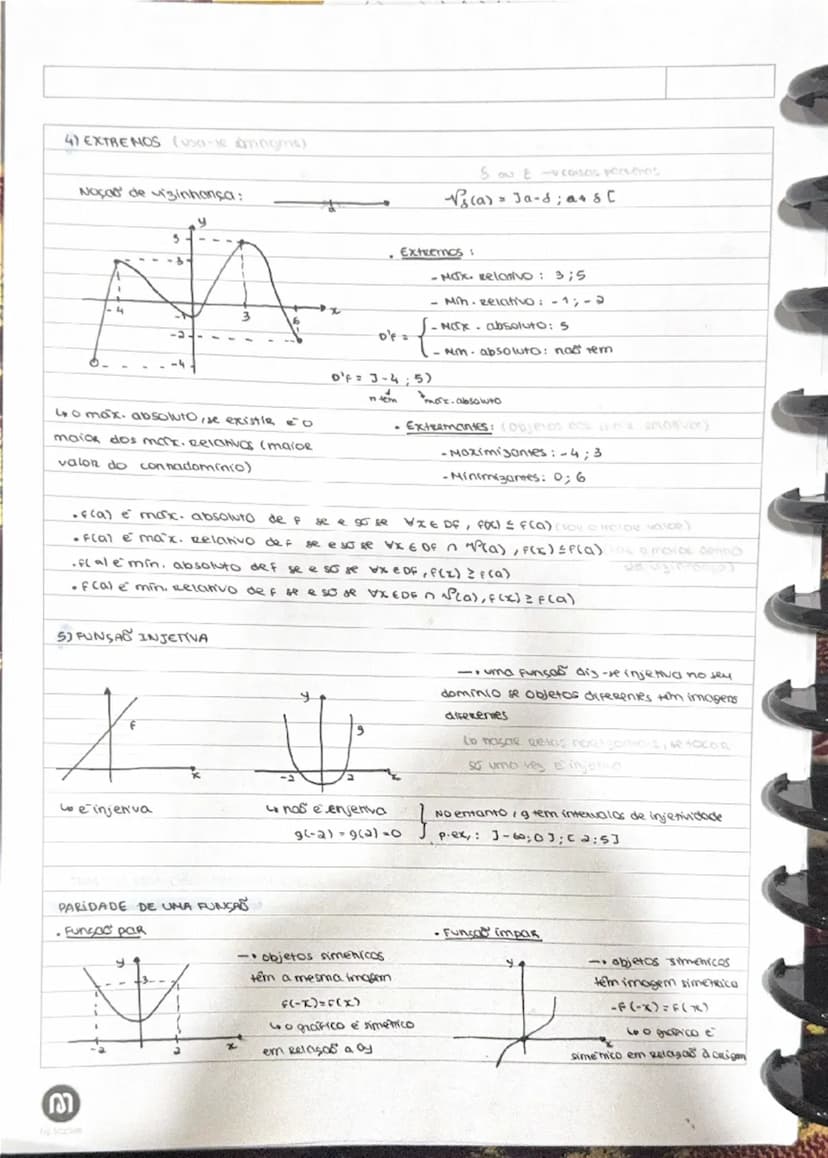 4) EXTREMOS (usa-se
Noção de vizinhança:
a
δ ou ε → coisas pequenas
Vδ(a) = ]a-δ ; a+δ[
y
5
3
-4
-1
3
6
x
-2
-4
• Extremos:
- Máx. Relativo: 3 ; 5
- Mín. Relativo: -1 ; -2
D'f = { - Máx. absoluto: 5
- Mín. absoluto: não tem
D'f = ]-4 ; 5]
n tem máx. absoluto
↳ o máx. absoluto, se existir é o
maior dos máx. Relativos (maior
valor do contradomínio)
• Extremantes: (Objetos
- Maximizantes: -4 ; 3
- Minimizantes: 0 ; 6
• f(a) é máx. absoluto de f se e só se ∀x ∈ Df, f(x) ≤ f(a) (sou o maior valor)
• f(a) é máx. relativo de f se e só se ∀x ∈ Df ∩ V(a), f(x) ≤ f(a) (sou o maior dentro
da vizinhança)
• f(a) é mín. absoluto de f se e só se ∀x ∈ Df, f(x) ≥ f(a)
• f(a) é mín. Relativo de f se e só se ∀x ∈ Df ∩ V(a), f(x) ≥ f(a)
5) FUNÇÃO INJETIVA
f
x
y
g
-2
2
x
→ uma função diz-se injetiva no seu
domínio se objetos diferentes têm imagens
diferentes
retas horizontais, se tocar
só uma vez é injetiva
↳ é injetiva
↳ não é enjetiva
g(-2) = g(2) = 0
} No entanto, g tem intervalos de injetividade
p. ex.: ]-∞; 0] ; [2; 5]
PARIDADE DE UMA FUNÇÃO
• Função par
y
3
-2
2
x
→ objetos simétricos
têm a mesma imagem
f(-x) = f(x)
↳ o gráfico é simétrico
em relação a Oy
• Função ímpar
y
x
→ objetos simétricos
têm imagem simétrica
-f(-x) = f(x)
↳ o gráfico é
simétrico em relação à origem